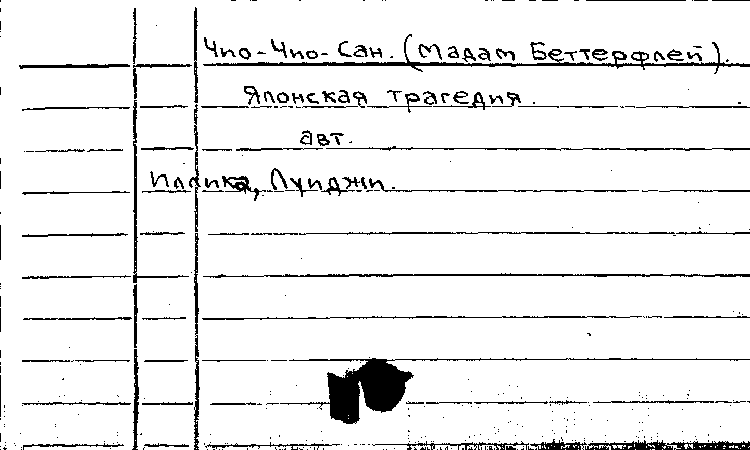 Чио-Чио-Сан. (Мадам Беттерфлей).
Японская трагедия.
авт.
Иллика, Луиджи.